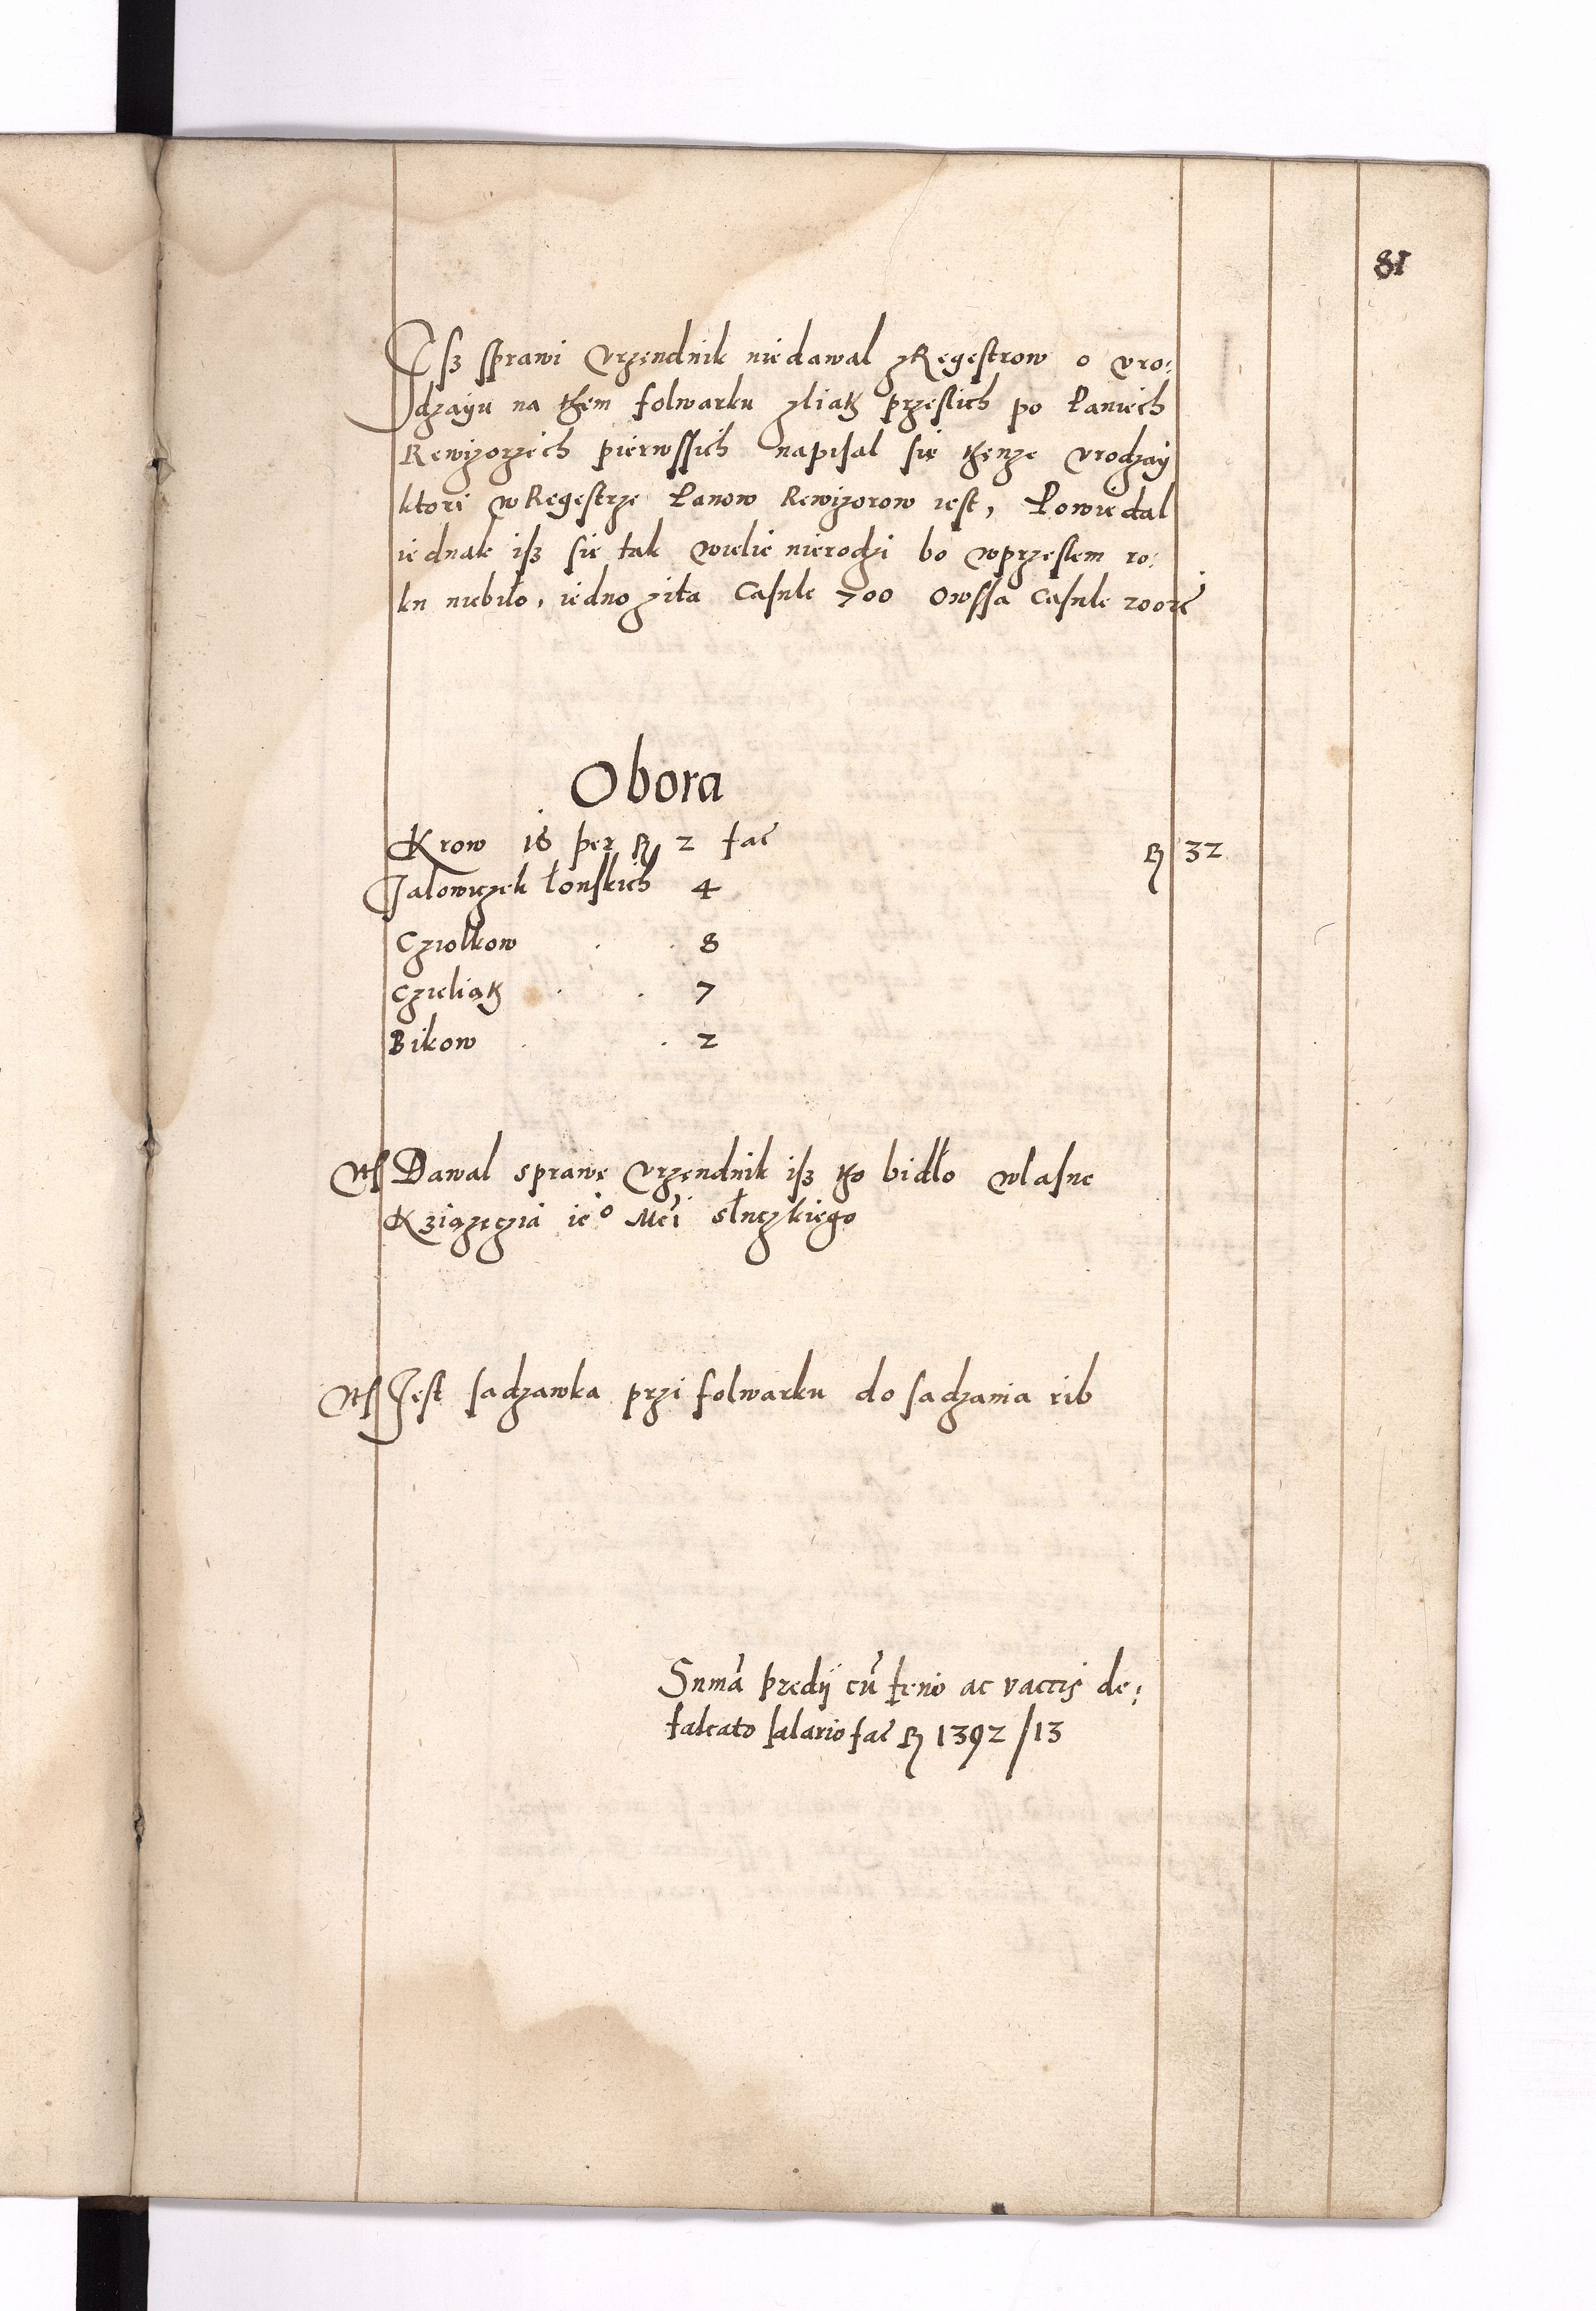 81
Isz sprawi vrzendnik niedawal zRegestrow o vro:
dzayu na them folwarku zliath przeslich po Paniech
Rewizorzech pierwssich napisal się thenze vrodzay
ktori wRegestrze Panow Rewizorow iest, Powiedal
iednak isz sie tak wielie nierodzi bo wprzeslem ro:
ku niebiło, iedno zita Casule 700 Owssa Casule 200 rć
Obora
Krow 16 per R 2 fać R 32
Jalowiczek łonskich 4
Cziołkow . . 8
Czieliąth . . 7
Bikow . . 2
Nb Dawal sprawę vrzendnik isz tho bidło wlasne
Kziązęczia ieo Mći słuczkiego
Nb Jest sadzawka przi folwarku do sadzania rib
Sumā predij cū feno ac vaccis de:
falcato salario fać R 1392/13